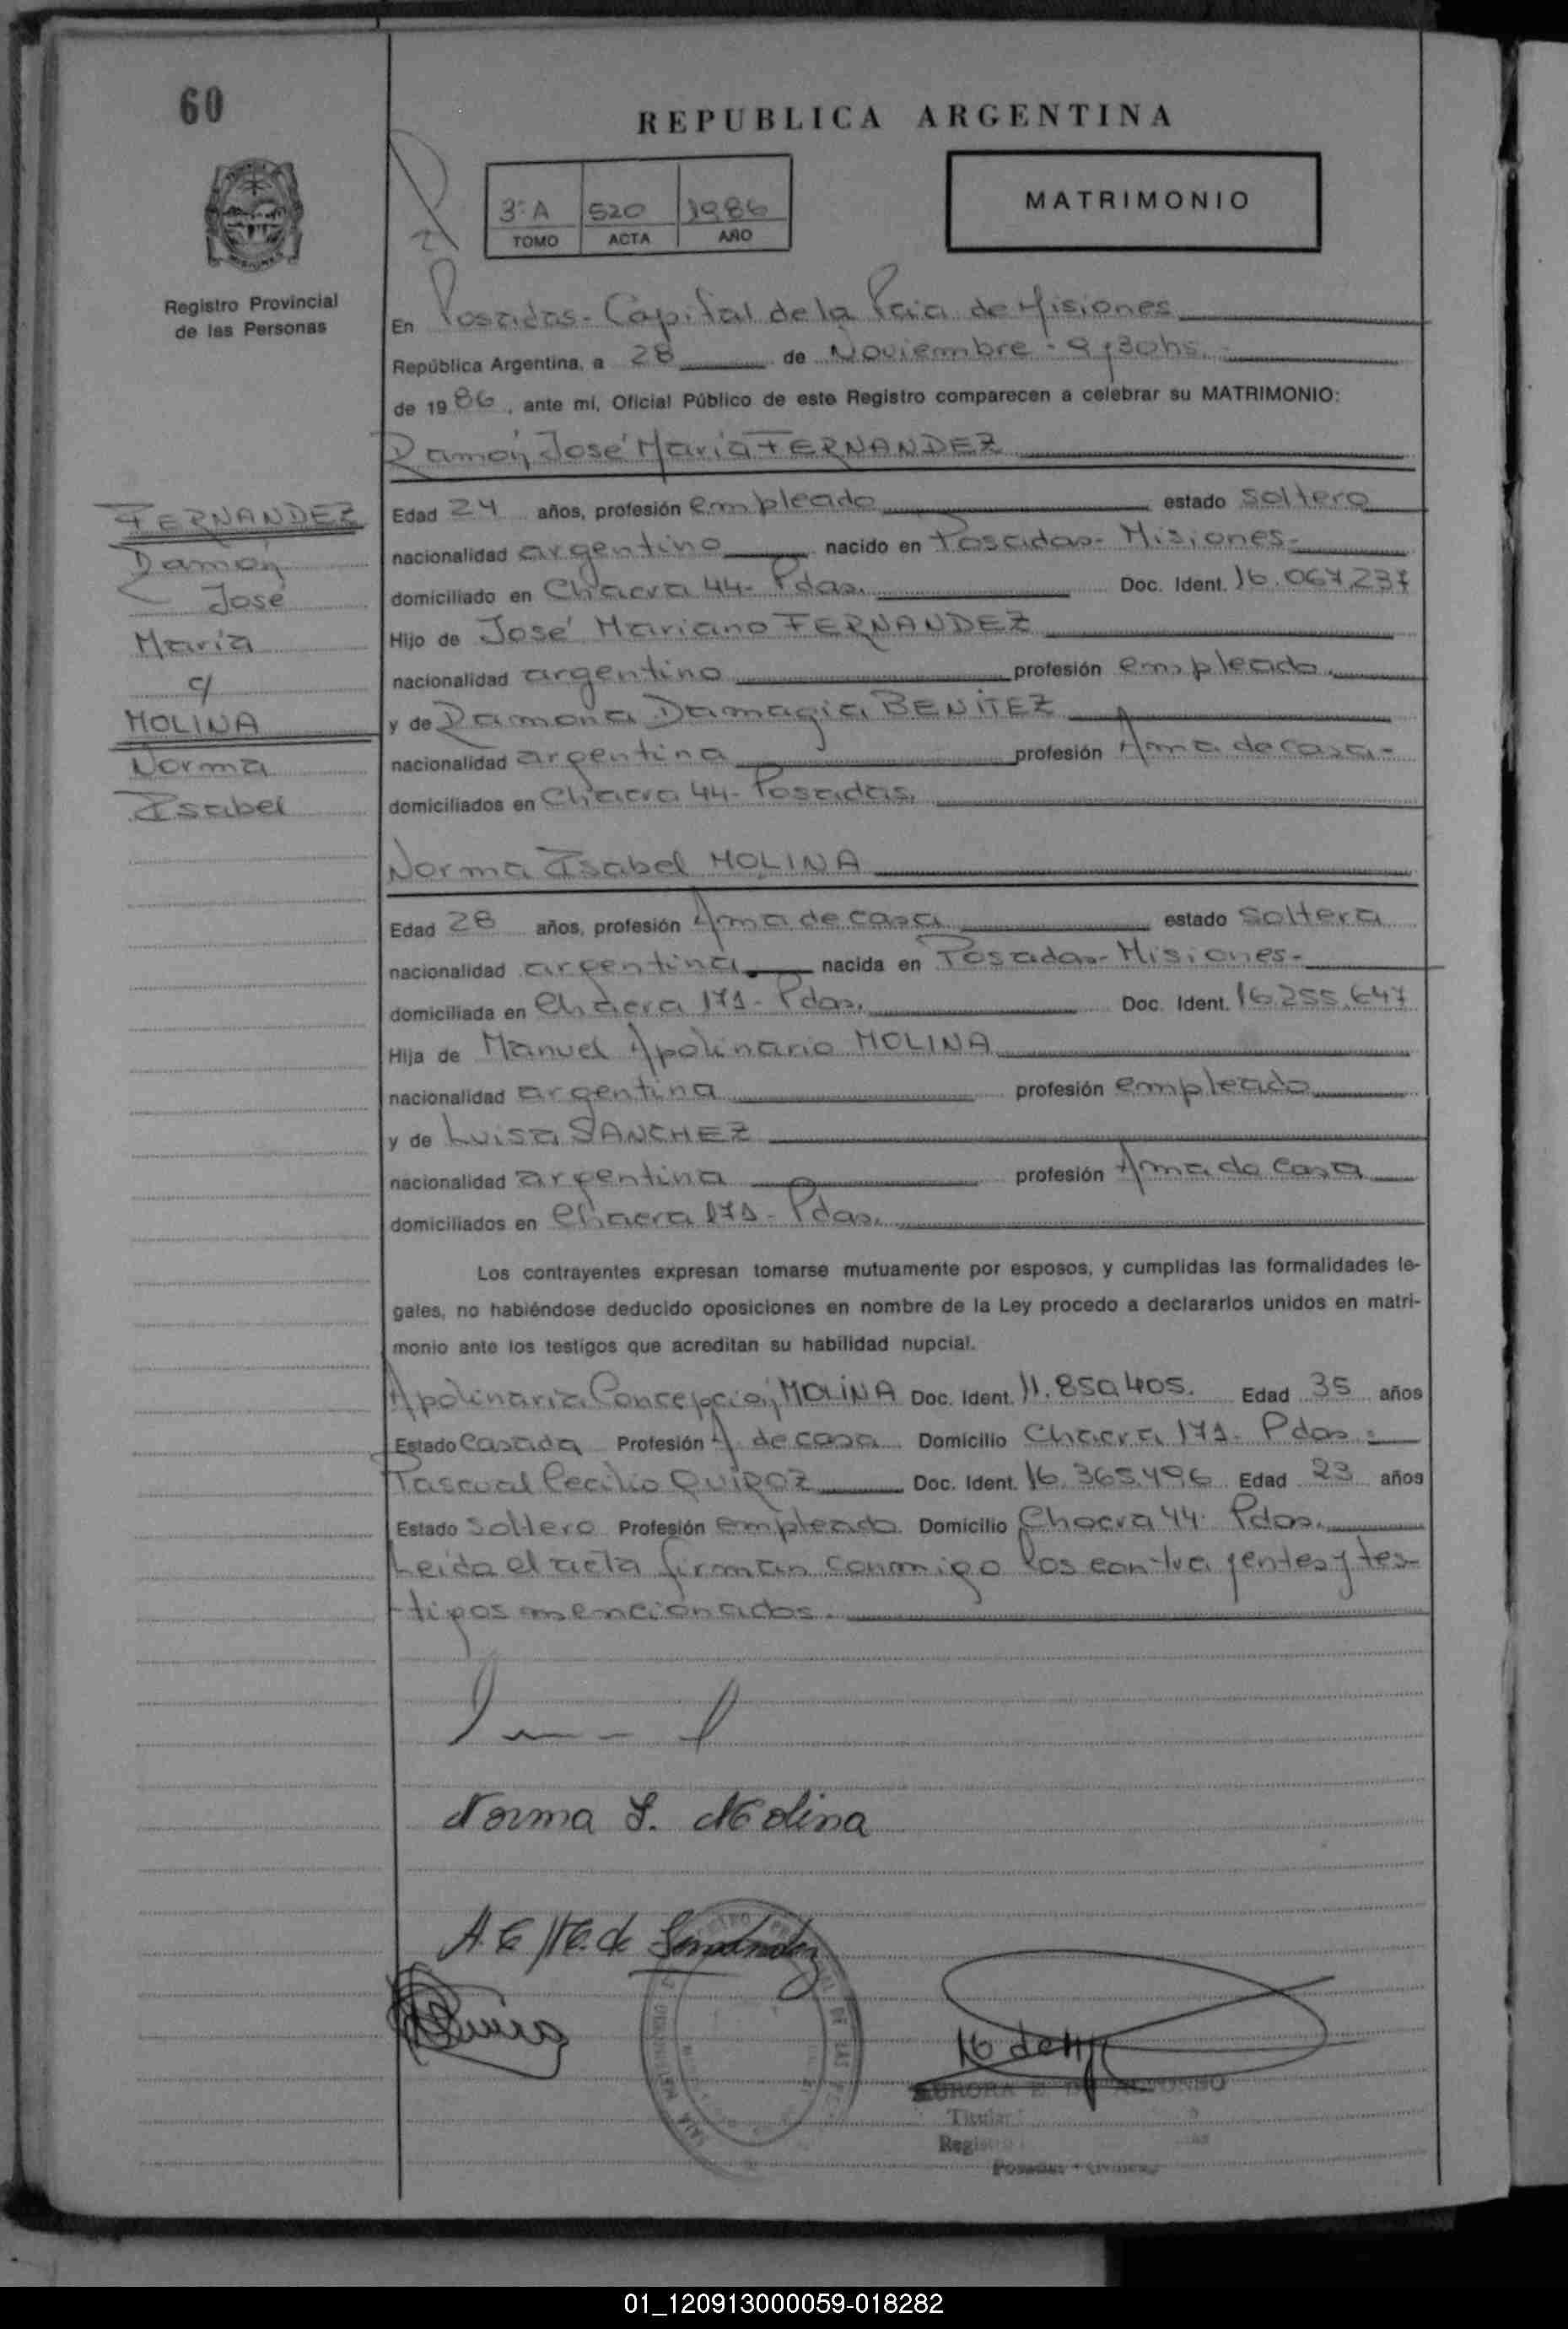 60
REPUBLICA ARGENTINA
3ºA 520 1986
TOMO ACTA AÑO
MATRIMONIO
Registro Provincial
de las Personas
En Posadas - Capital de la Pcia de Misiones
República Argentina, a 28 de Noviembre - 9 y 30 hs.
de 1986, ante mí, Oficial Público de este Registro comparecen a celebrar su MATRIMONIO:
Ramón José María FERNANDEZ
FERNANDEZ
Ramón
José
María
c/
MOLINA
Norma
Isabel
Edad 24 años, profesión empleado estado soltero
nacionalidad argentino nacido en Posadas - Misiones -
domiciliado en Chacra 44 - Pdas. Doc. Ident. 16.067.237
Hijo de José Mariano FERNANDEZ
nacionalidad argentino profesión empleado.
y de Ramona Damagia BENITEZ
nacionalidad argentina profesión Ama de casa -
domiciliados en Chacra 44 - Posadas.
Norma Isabel MOLINA
Edad 28 años, profesión Ama de casa estado soltera
nacionalidad argentina nacida en Posadas - Misiones -
domiciliada en Chacra 171 - Pdas. Doc. Ident. 16.255.647
Hija de Manuel Apolinario MOLINA
nacionalidad argentina profesión empleado
y de Luisa SANCHEZ
nacionalidad argentina profesión Ama de Casa
domiciliados en Chacra 171 - Pdas.
Los contrayentes expresan tomarse mutuamente por esposos, y cumplidas las formalidades le-
gales, no habiéndose deducido oposiciones en nombre de la Ley procedo a declararlos unidos en matri-
monio ante los testigos que acreditan su habilidad nupcial.
Apolinaria Concepción MOLINA Doc. Ident. 11.850.405. Edad 35 años
Estado Casada Profesión A. de casa Domicilio Chacra 171 - Pdas.
Pascual Cecilio QUIROZ Doc. Ident. 16.365.496 Edad 23 años
Estado soltero Profesión empleado Domicilio Chacra 44 - Pdas.
Leída el acta firman conmigo los contrayentes y tes-
tigos mencionados.
Norma I. Molina
Titular
Posadas
01_120913000059-018282